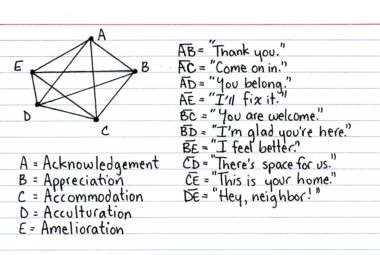 A
E
B
D
C
A = Acknowledgement
B = Appreciation
C = Accommodation
D = Acculturation
E = Amelioration
AB = "Thank you."
AC = "Come on in."
AD = "You belong."
AE = "I'll fix it."
BC = "You are welcome."
BD = "I'm glad you're here."
BE = "I feel better."
CD = "There's space for us."
CE = "This is your home."
DE = "Hey, neighbor!"